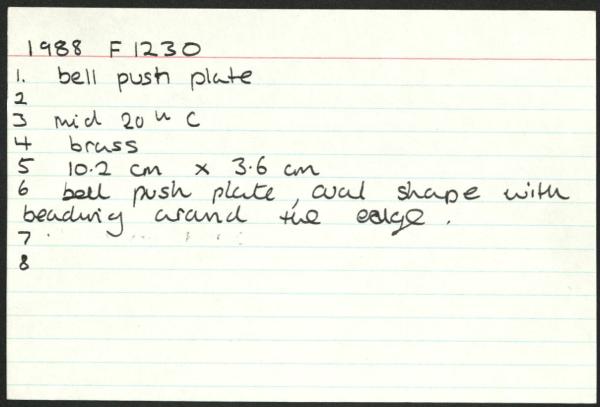 1988 F1230
1. bell push plate
2
3 mid 20th C
4 brass
5 10.2 cm x 3.6 cm
6 bell push plate, oval shape with
beading around the edge.
7
8